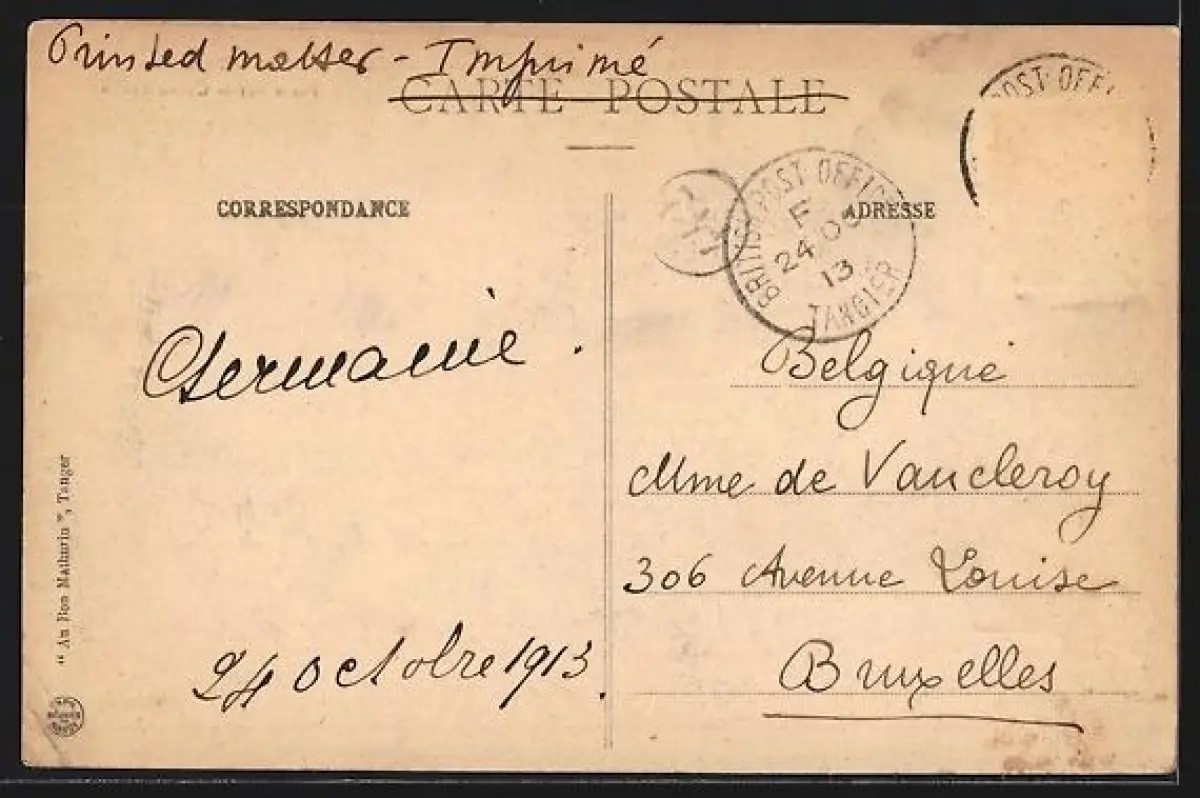 Printed matter - Imprimé
CARTE POSTALE
POST OFFI
CORRESPONDANCE
ADRESSE
BRITISH POST OFFICE
F
24 OC
13
TANGIER
Germaine.
Belgique
Mme de Vaucleroy
306 Avenue Louise
Bruxelles
24 octobre 1913.
" Au Bon Mathurin ", Tanger